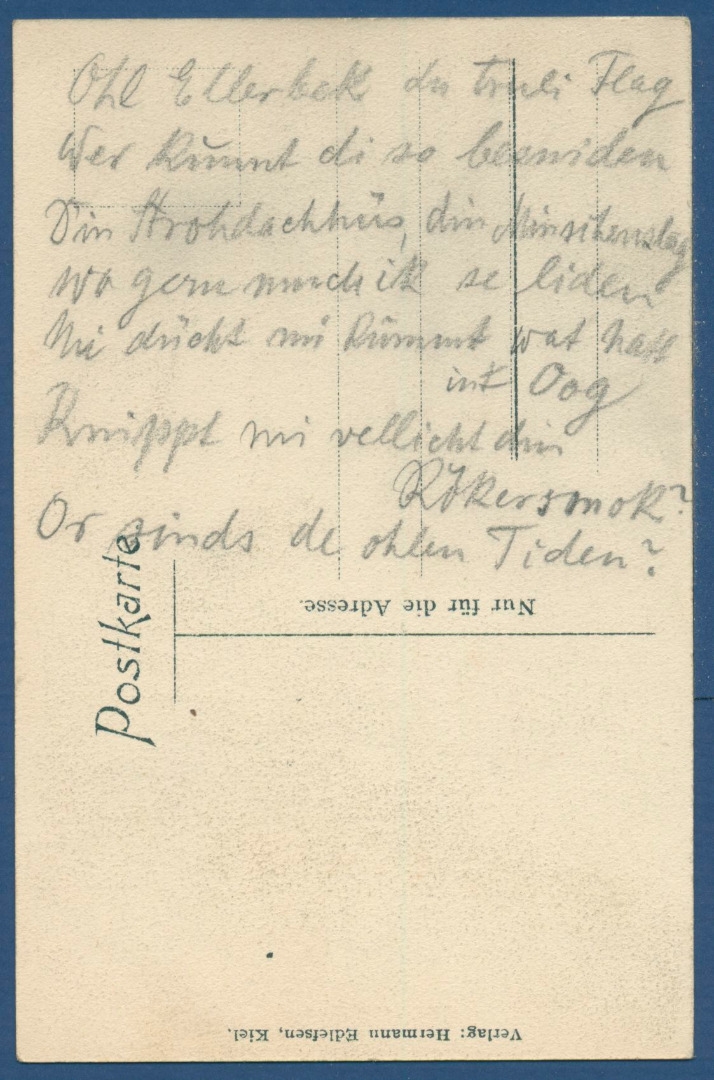 Ohl Ellerbek du truli Flag
Wer kummt di so besniden
Din Strohdachhüs, din Minschenslag
wo gern much ik se liden
Mi dücht mi kummt wat natt
int Oog
Knippt mi vellicht din
Rökersmok?
Or sinds de ohlen Tiden?
Postkarte
Nur für die Adresse.
Verlag: Hermann Edlefsen, Kiel.